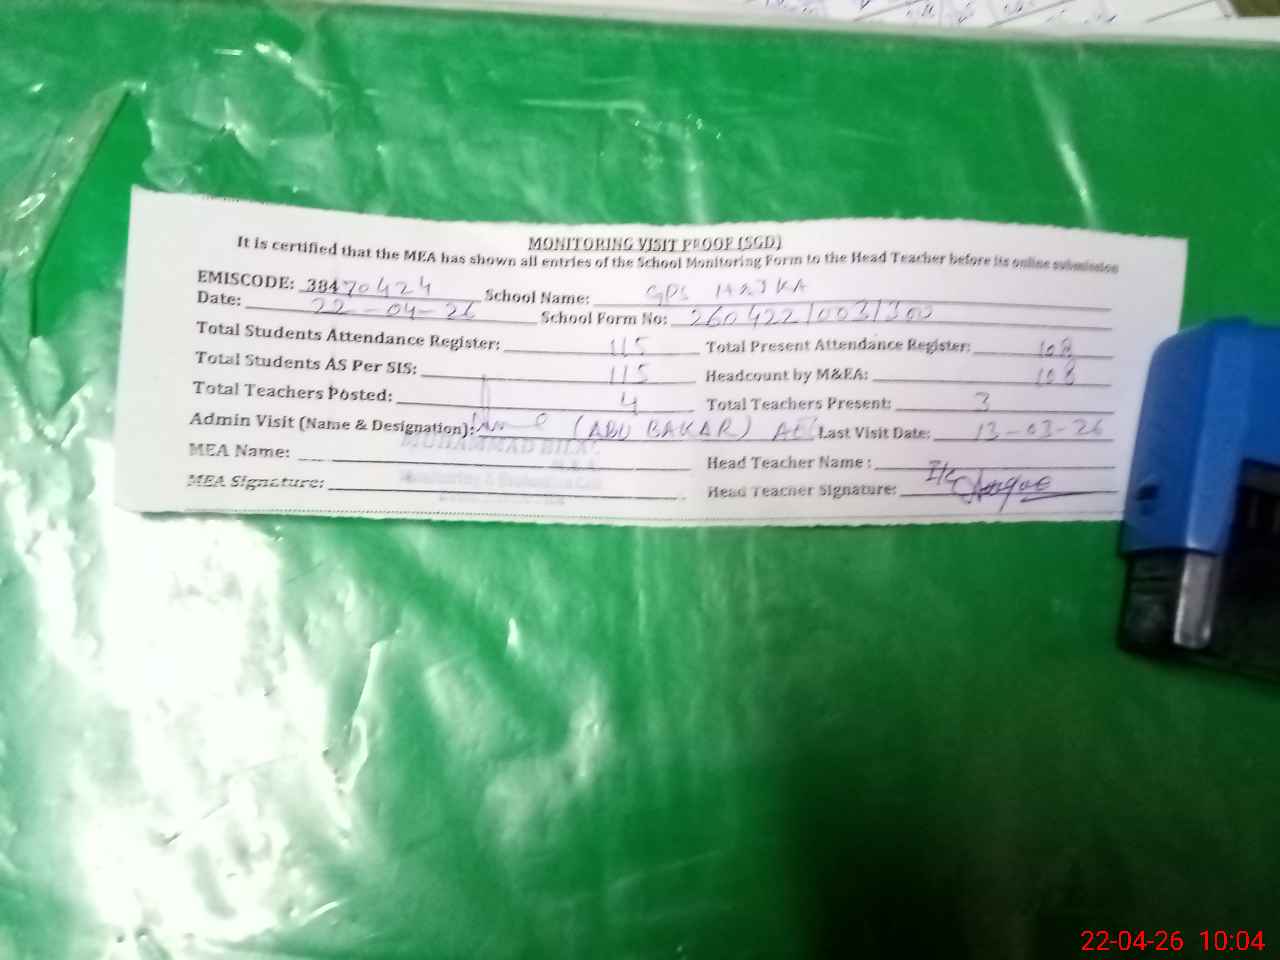 MONITORING VISIT PROOF (SGD)
It is certified that the MEA has shown all entries of the School Monitoring Form to the Head Teacher before its online submission
EMISCODE: 38470424 School Name: GPS
Date: 22-04-26 School Form No: 260422/003/300
Total Students Attendance Register: 115 Total Present Attendance Register: 108
Total Students AS Per SIS: 115 Headcount by M&EA: 108
Total Teachers Posted: 4 Total Teachers Present: 3
Admin Visit (Name & Designation): (ABU BAKAR) Last Visit Date: 13-03-26
MUHAMMAD BILAL
MEA Name: Head Teacher Name:
MEA Signature: Head Teacher Signature:
22-04-26 10:04